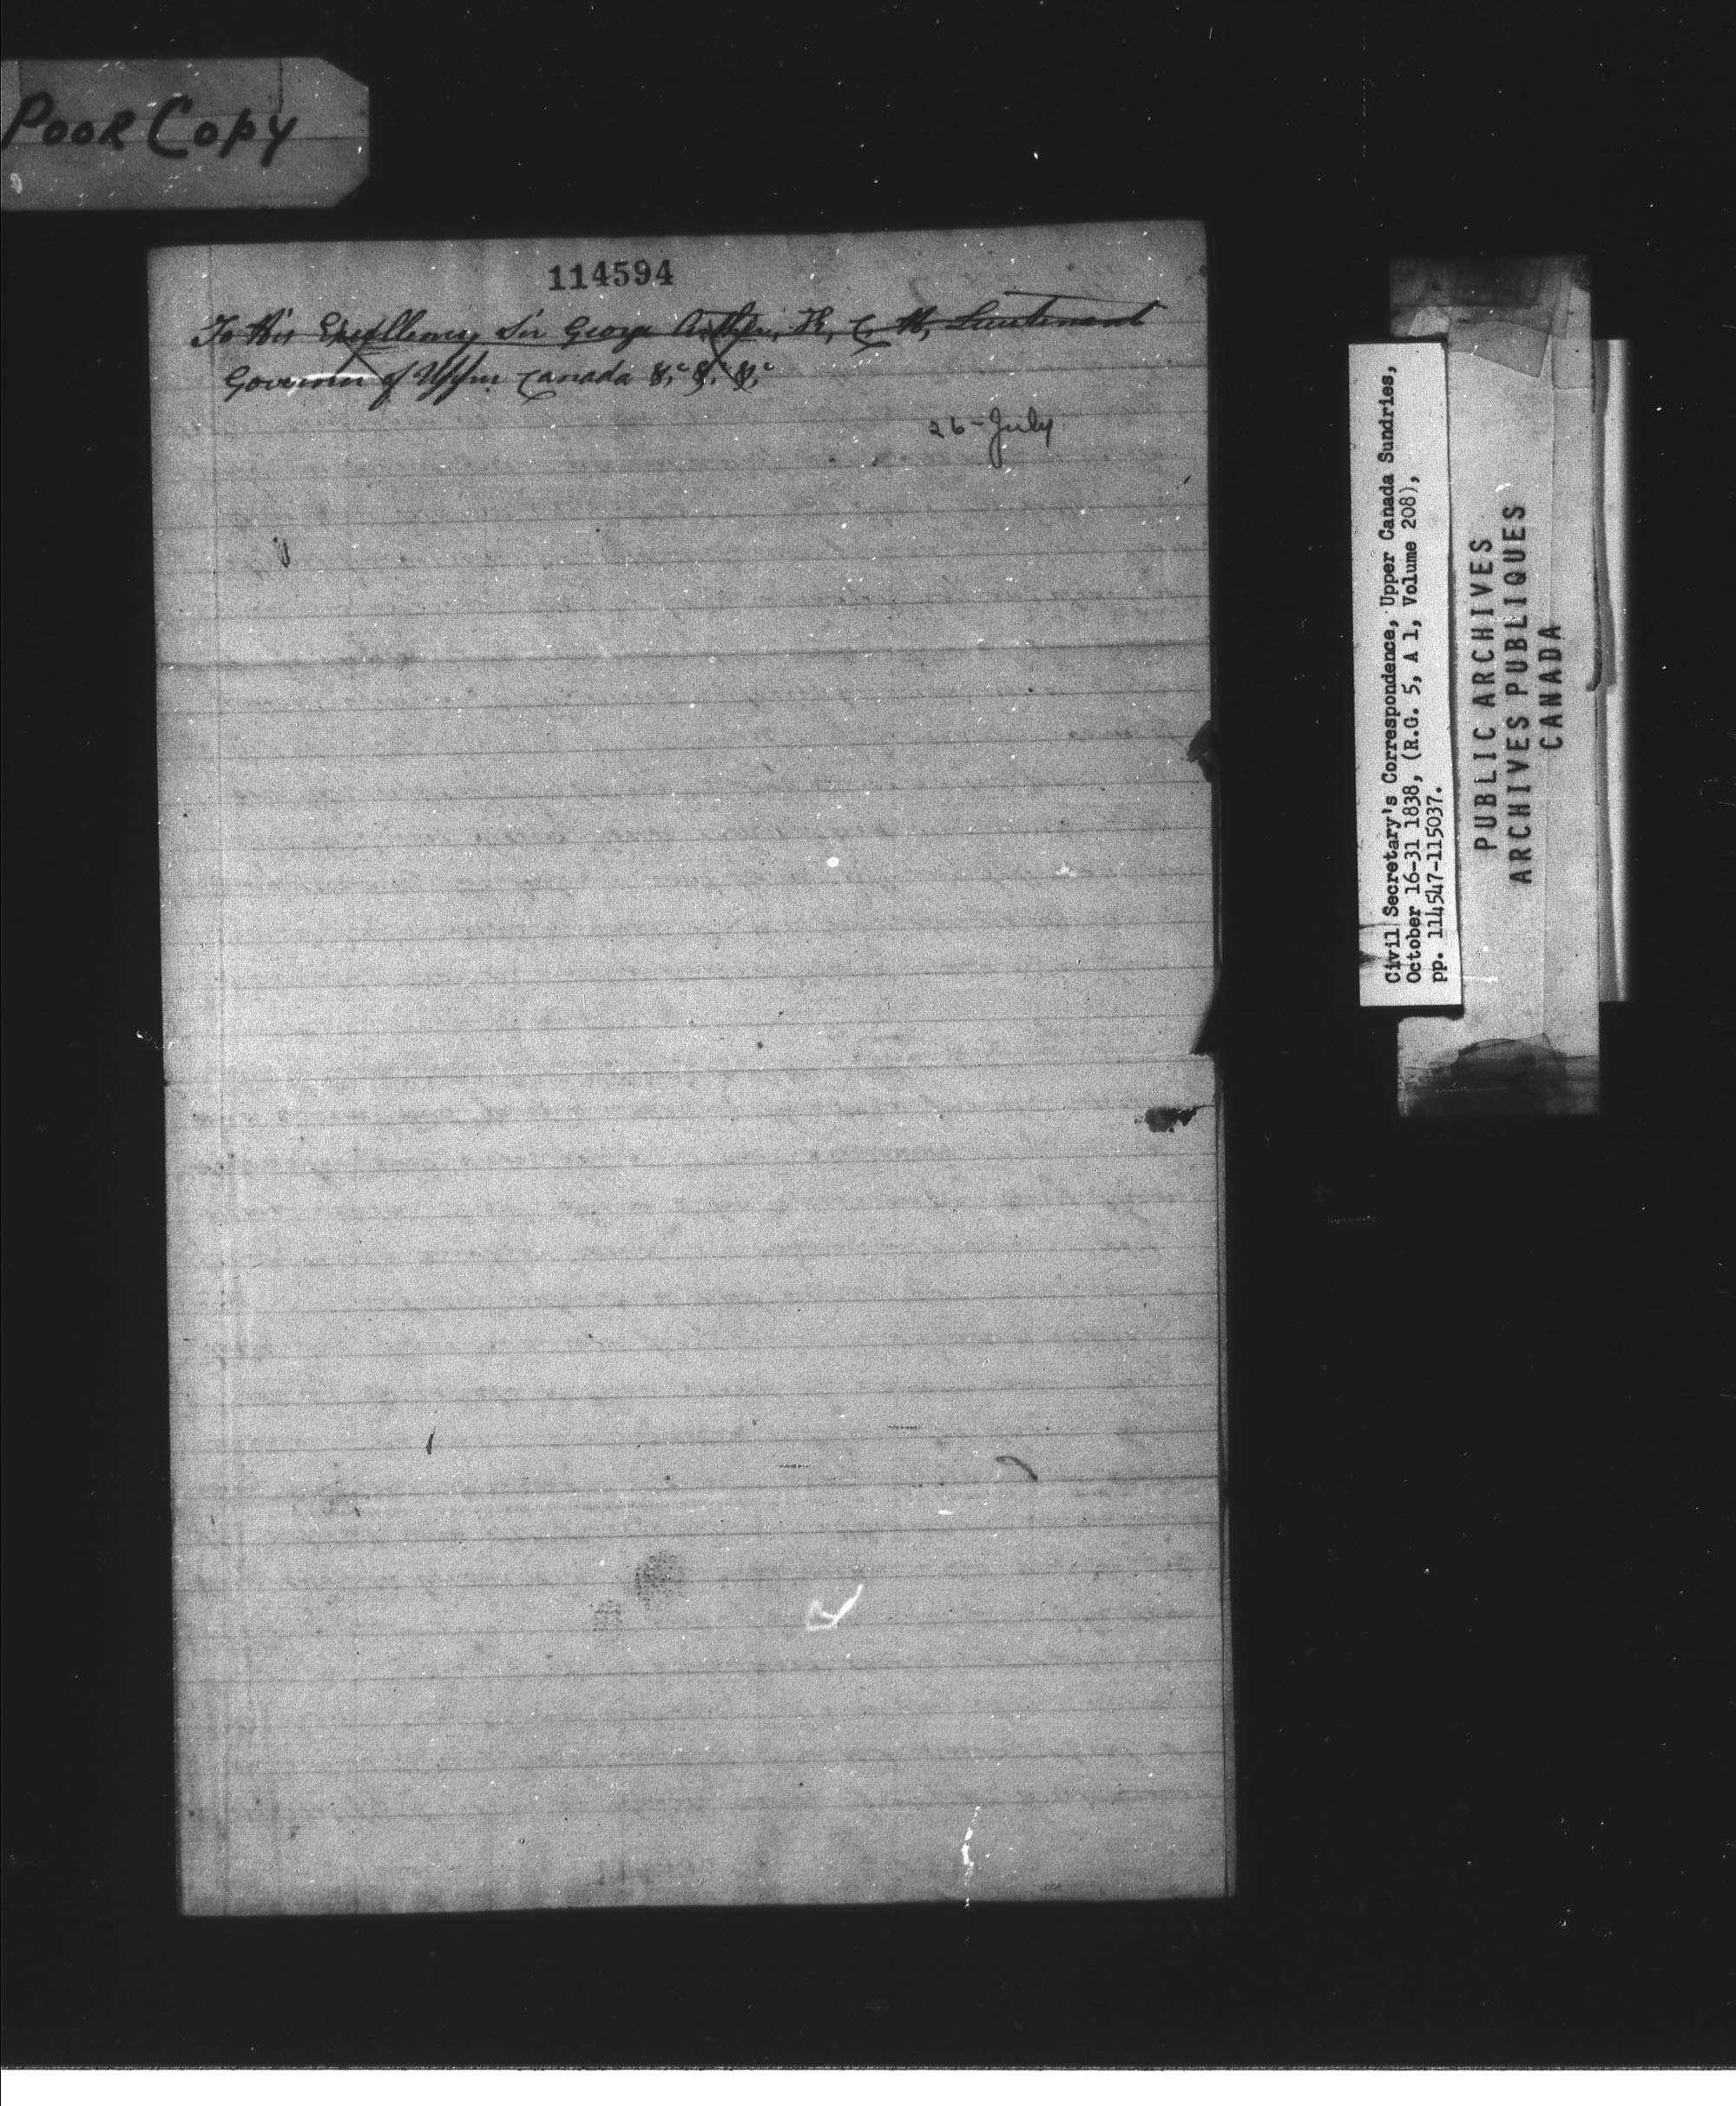 Poor Copy
114594
To His Excellency Sir George Arthur, K, C, H, Lieutenant
Governor of Upper Canada &c &c &c
26 - July
Civil Secretary's Correspondence, Upper Canada Sundries,
October 16-31 1838, (R.G. 5, A 1, Volume 208),
pp. 114547-115037.
PUBLIC ARCHIVES
ARCHIVES PUBLIQUES
CANADA